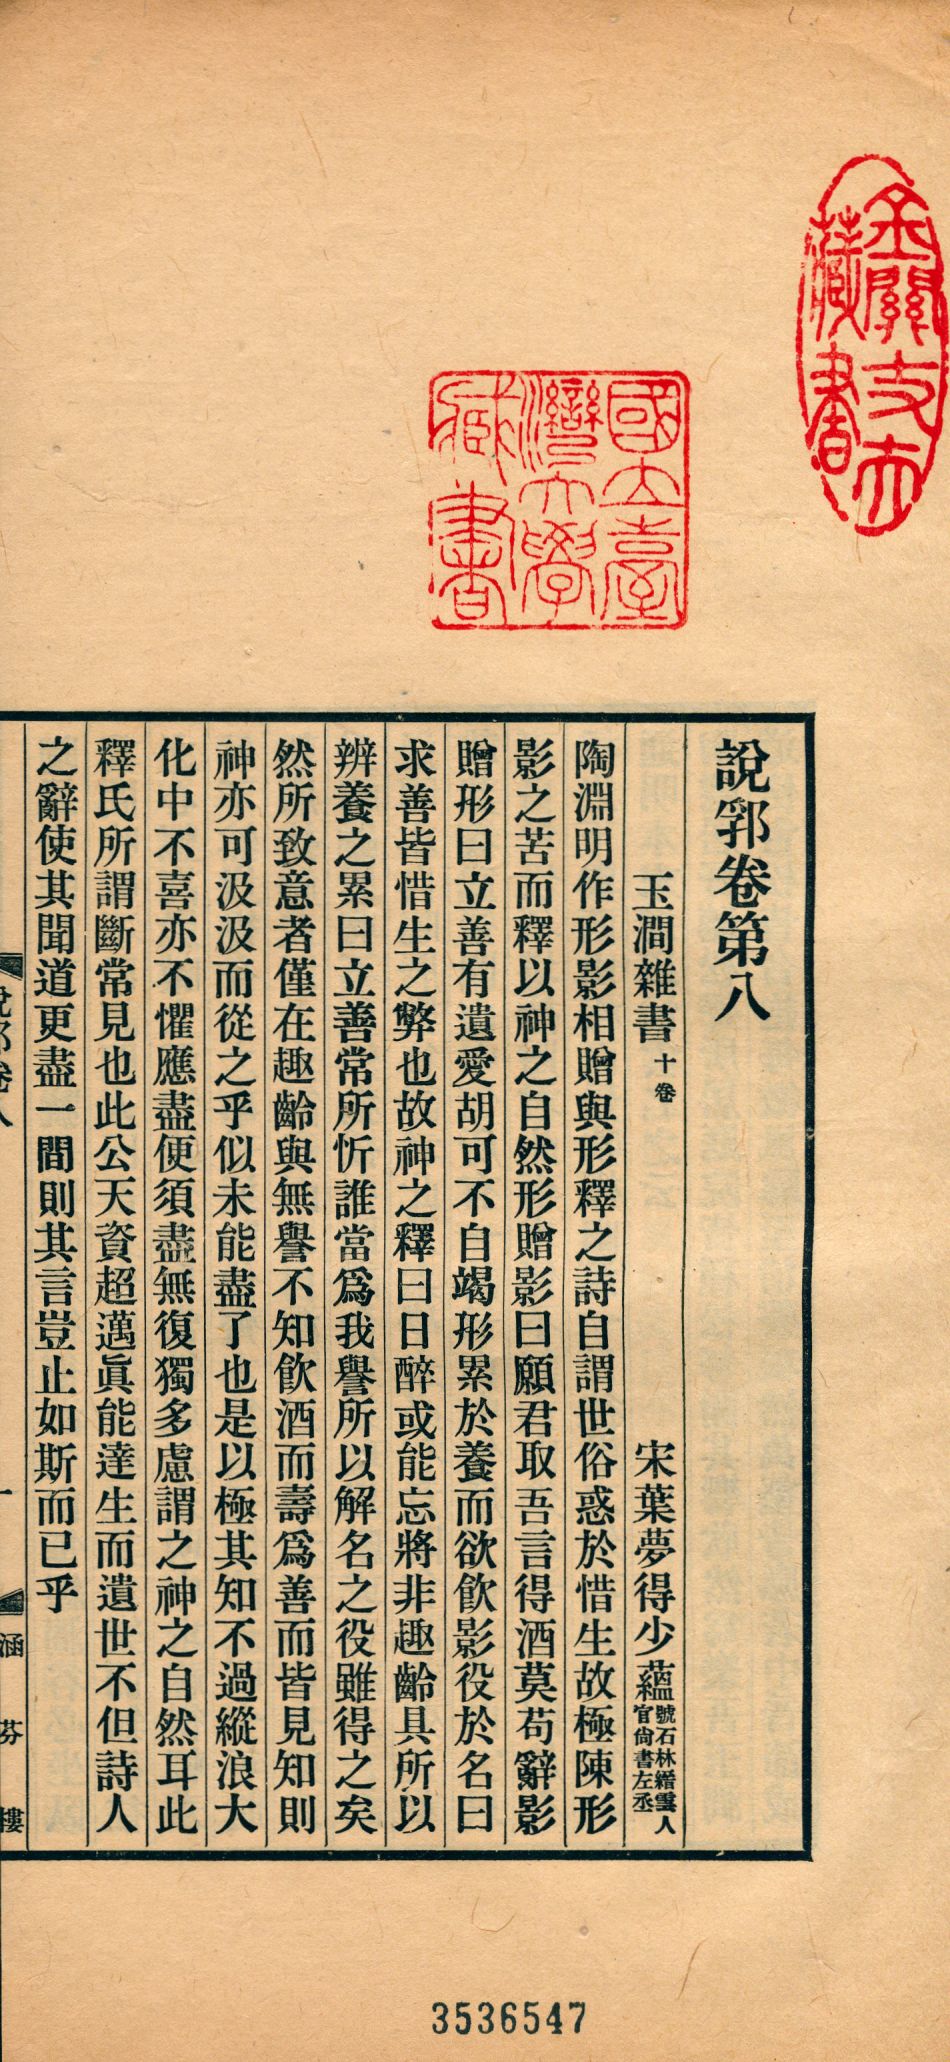 說郛卷第八
玉澗雜書十卷 宋葉夢得少蘊號石林縉雲人官尙書左丞
陶淵明作形影相贈與形釋之詩自謂世俗惑於惜生故極陳形
影之苦而釋以神之自然形贈影曰願君取吾言得酒莫苟辭影
贈形曰立善有遺愛胡可不自竭形累於養而欲飮影役於名曰
求善皆惜生之弊也故神之釋曰日醉或能忘將非趣齡具所以
辨養之累曰立善常所忻誰當爲我譽所以解名之役雖得之矣
然所致意者僅在趣齡與無譽不知飮酒而壽爲善而皆見知則
神亦可汲汲而從之乎似未能盡了也是以極其知不過縱浪大
化中不喜亦不懼應盡便須盡無復獨多慮謂之神之自然耳此
釋氏所謂斷常見也此公天資超邁眞能達生而遺世不但詩人
之辭使其聞道更盡一間則其言豈止如斯而已乎
說郛卷八 一 涵芬樓
國立臺灣大學藏書
金關丈夫藏書
3536547